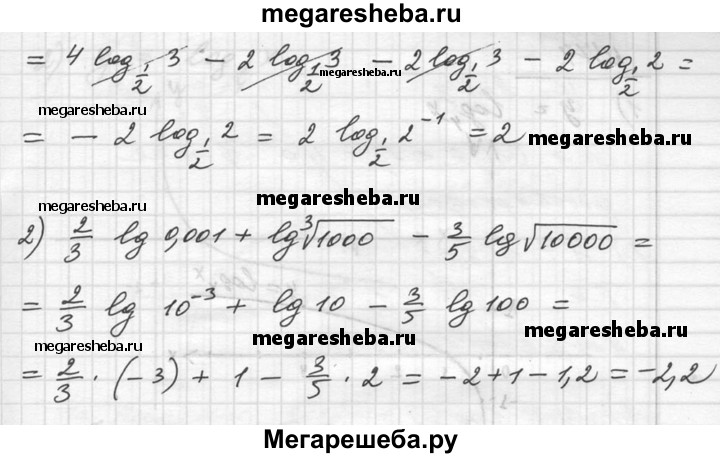 megaresheba.ru
= 4 log_{1/2} 3 - 2 log_{1/2} 3 - 2 log_{1/2} 3 - 2 log_{1/2} 2 =
megaresheba.ru
megaresheba.ru
= - 2 log_{1/2} 2 = 2 log_{1/2} 2^{-1} = 2
megaresheba.ru
megaresheba.ru
megaresheba.ru
2) 2/3 lg 0,001 + lg ∛1000 - 3/5 lg √10000 =
= 2/3 lg 10^{-3} + lg 10 - 3/5 lg 100 =
megaresheba.ru
megaresheba.ru
megaresheba.ru
= 2/3 · (-3) + 1 - 3/5 · 2 = -2 + 1 - 1,2 = -2,2
Мегарешеба.ру